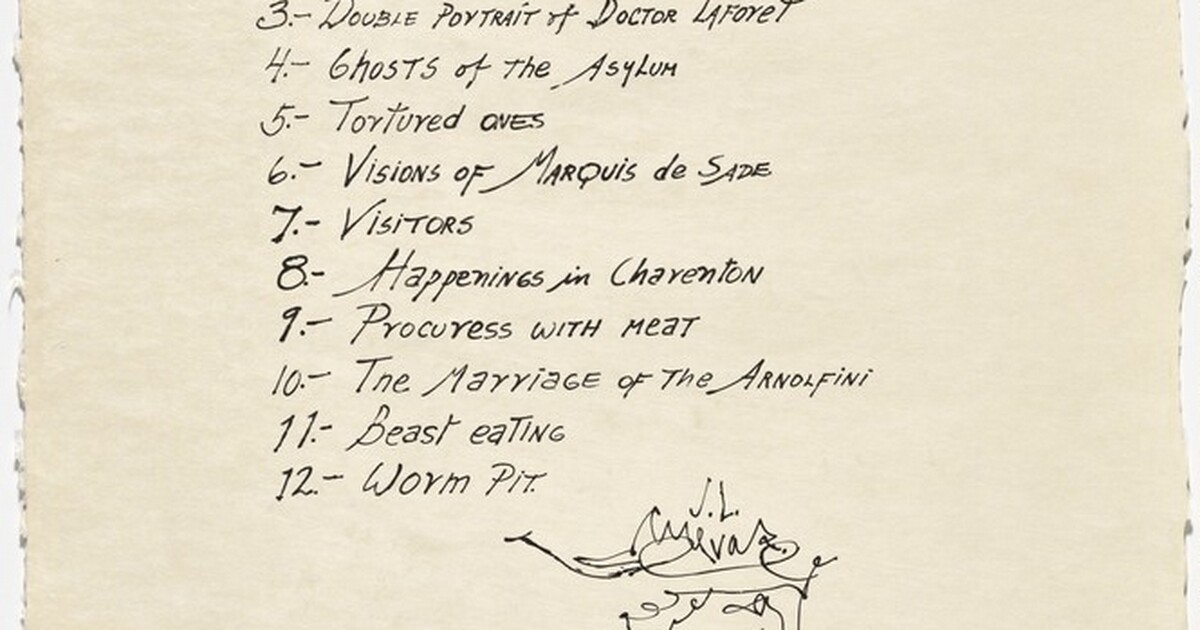 3.- Double Portrait of Doctor Laforet
4.- Ghosts of the Asylum
5.- Tortured ones
6.- Visions of Marquis de Sade
7.- Visitors
8.- Happenings in Charenton
9.- Procuress with meat
10.- The Marriage of the Arnolfini
11.- Beast eating
12.- Worm Pit.
J.L.
Cuevas.